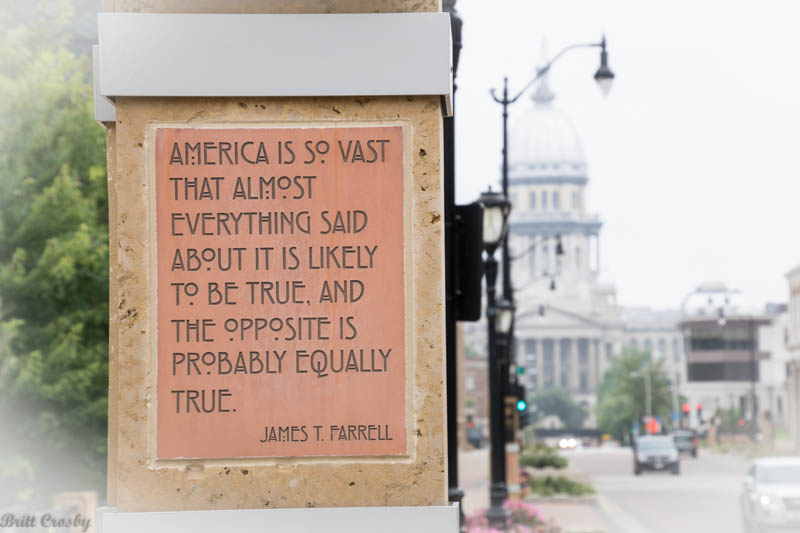 AMERICA IS SO VAST
THAT ALMOST
EVERYTHING SAID
ABOUT IT IS LIKELY
TO BE TRUE, AND
THE OPPOSITE IS
PROBABLY EQUALLY
TRUE.
JAMES T. FARRELL
Britt Crosby